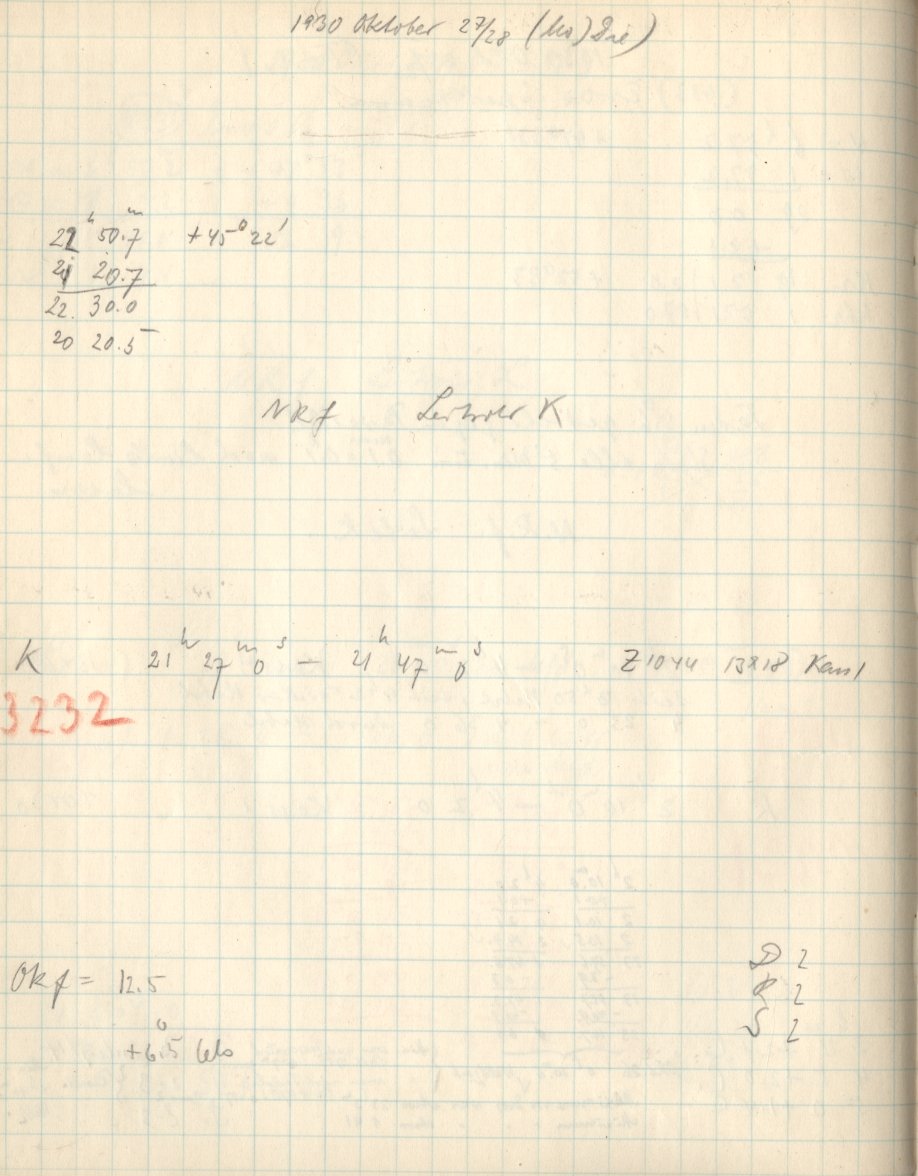 1930 Oktober 27/28 (Mo) Die)
22 h 50.m7 +45° 22'
21 20.7
22. 30.0
20 20.5
NRf Leitrohr K
K 21h 27m 0s — 21h 47m 0s Z1044 13x18
3232
Okf = 12.5
+6.°5 Cels
D 2
R 2
S 2